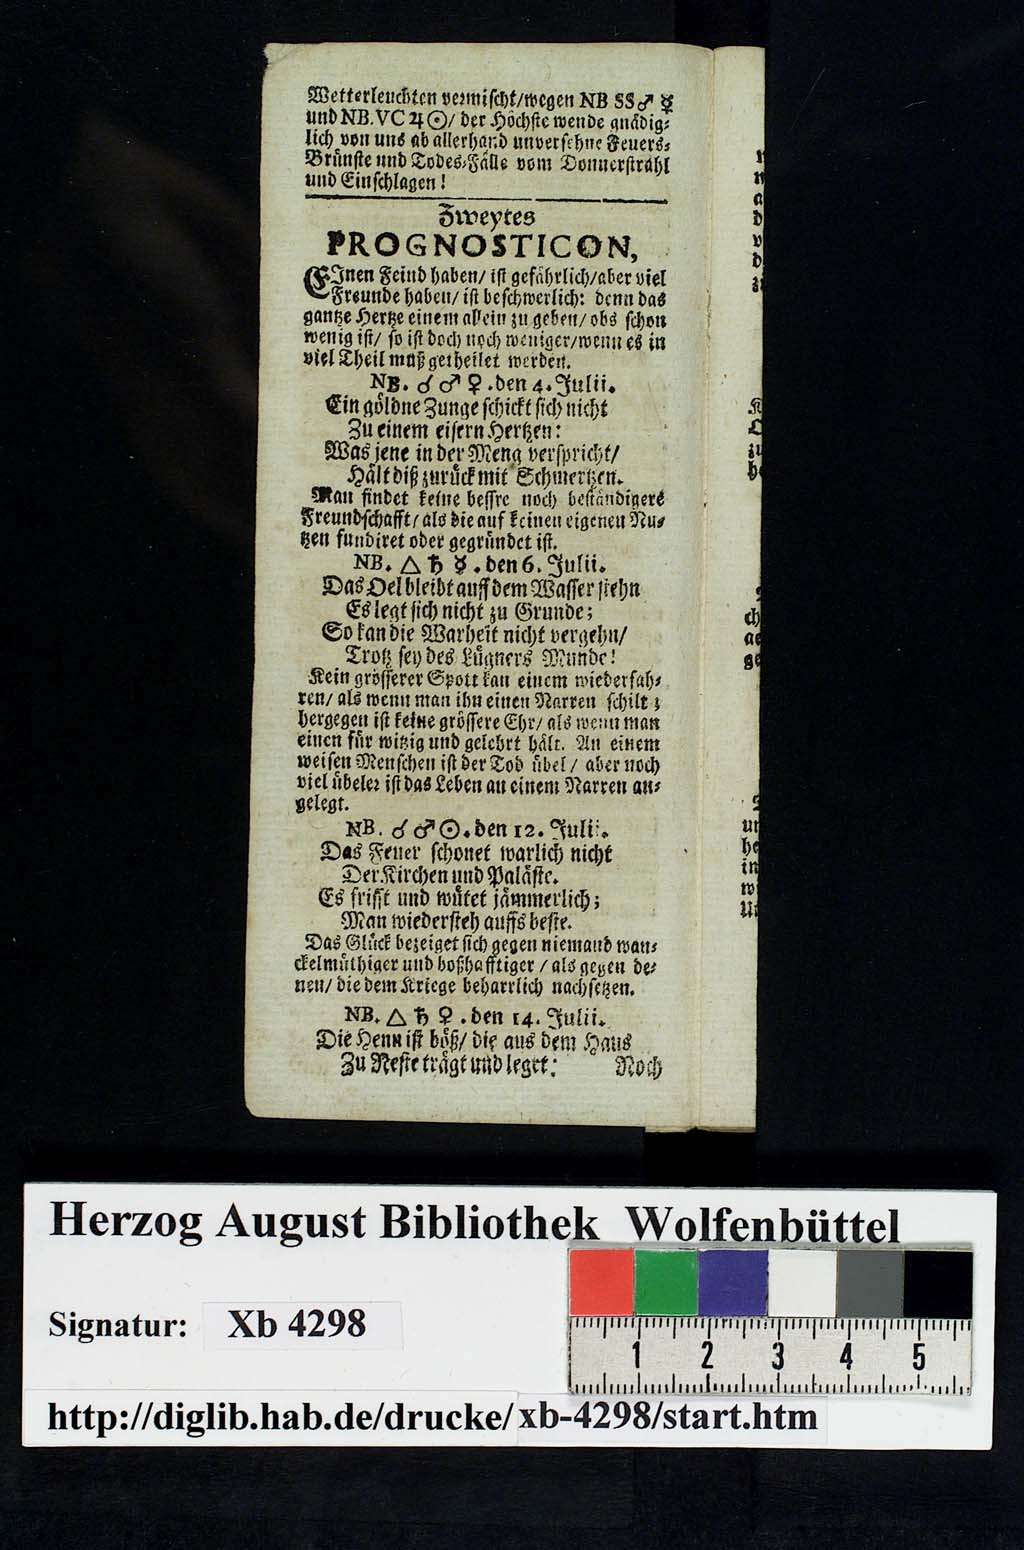 Wetterleuchten vermischt/wegen NB SS♂ ☿
und NB. VC ♃ ☉/ der Höchste wende gnädig⸗
lich von uns ab allerhand unversehne Feuers⸗
Brünste und Todes⸗Fälle vom Donnerstrahl
und Einschlagen!
Zweytes
PROGNOSTICON,
EInen Feind haben/ ist gefährlich/aber viel
Freunde haben/ ist beschwerlich: denn das
gantze Hertze einem allein zu geben/ obs schon
wenig ist/ so ist doch noch weniger/wenn es in
viel Theil muß getheilet werden.
NB. ☌ ♂ ♀ .den 4. Julii.
Ein göldne Zunge schickt sich nicht
Zu einem eisern Hertzen:
Was jene in der Meng verspricht/
Hält diß zurück mit Schmertzen.
Man findet keine bessre noch beständigere
Freundschafft/ als die auf keinen eigenen Nu⸗
tzen fundiret oder gegründet ist.
NB. △ ♄ ☿ .den 6. Julii.
Das Oel bleibt auff dem Wasser stehn
Es legt sich nicht zu Grunde;
So kan die Warheit nicht vergehn/
Trotz sey des Lügners Munde!
Kein grösserer Spott kan einem wiederfah⸗
ren/ als wenn man ihn einen Narren schilt;
hergegen ist keine grössere Ehr/ als wenn man
einen für witzig und gelehrt hält. An einem
weisen Menschen ist der Tod übel/ aber noch
viel übeler ist das Leben an einem Narren an⸗
gelegt.
NB. ☌ ♂ ☉.den 12. Julii.
Das Feuer schonet warlich nicht
Der Kirchen und Paläste.
Es frisst und wütet jämmerlich;
Man wiedersteh auffs beste.
Das Glück bezeiget sich gegen niemand wan⸗
ckelmüthiger und boßhafftiger/ als gegen de⸗
nen/ die dem Kriege beharrlich nachsetzen.
NB. △ ♄ ♀ .den 14. Julii.
Die Henn ist böß/ die aus dem Haus
Zu Neste trägt und leget: Noch
Herzog August Bibliothek Wolfenbüttel
Signatur: Xb 4298
1 2 3 4 5
http://diglib.hab.de/drucke/xb-4298/start.htm